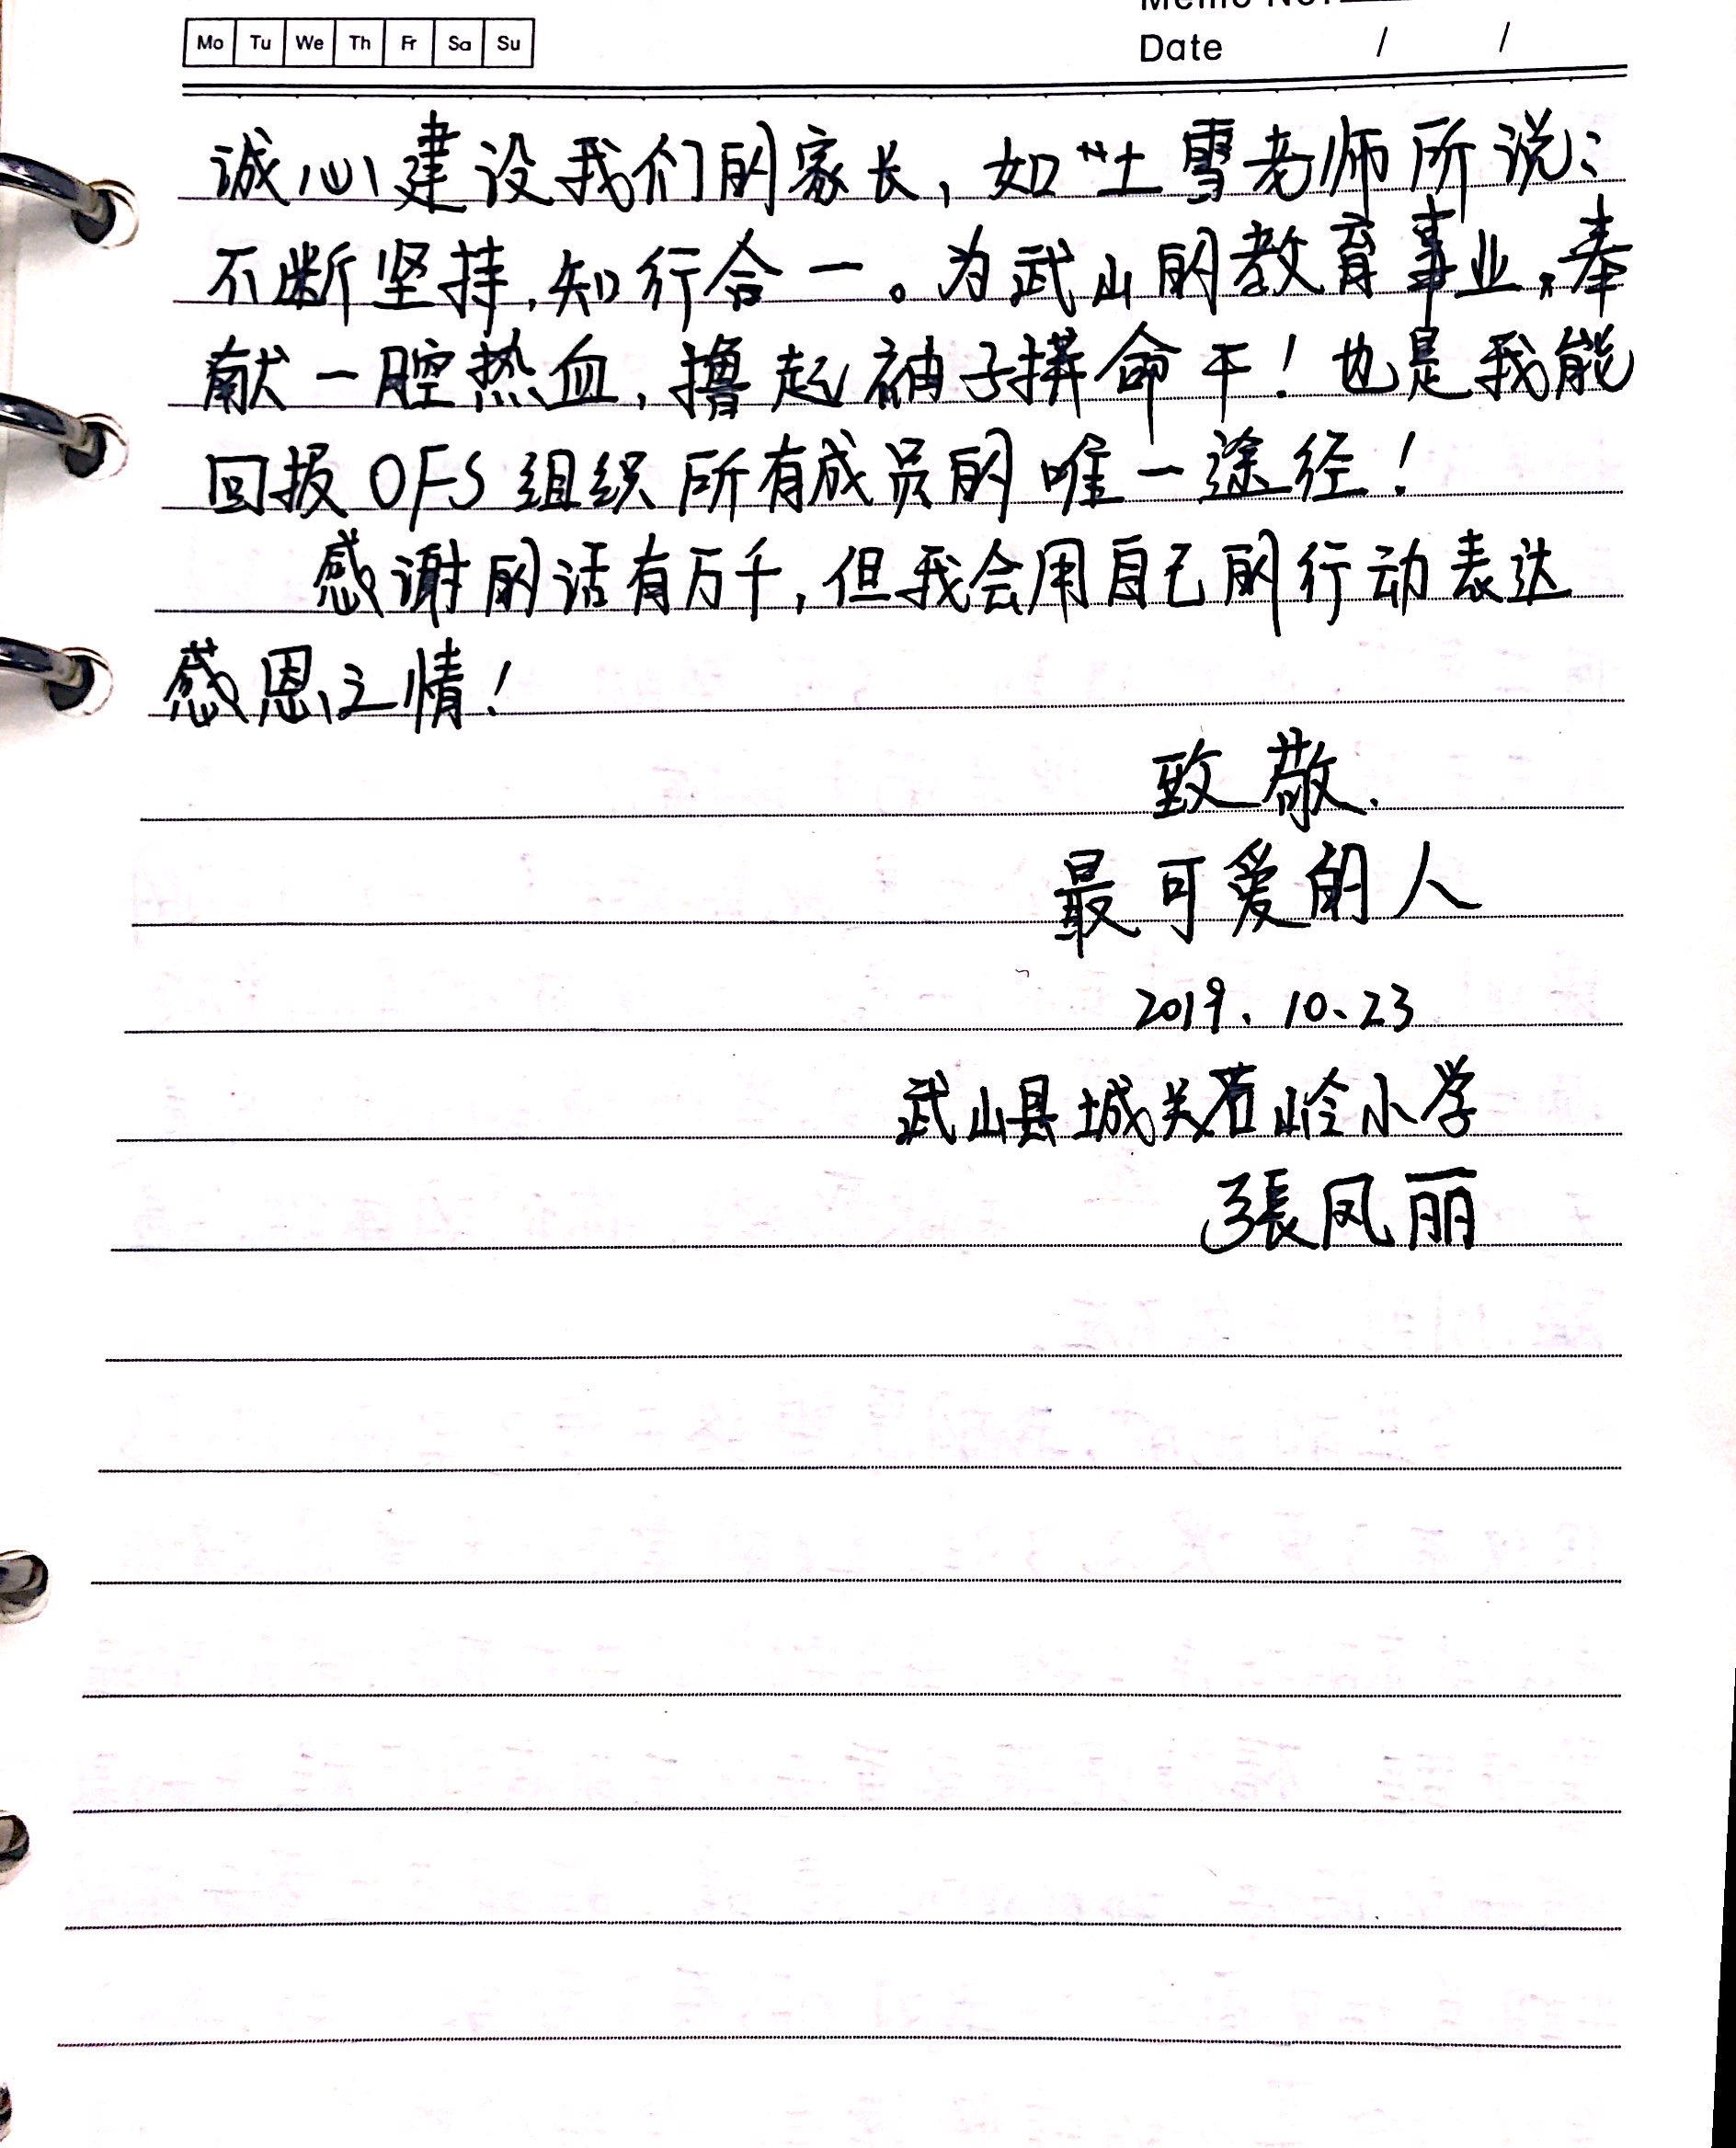 Mo Tu We Th Fr Sa Su
Date / /
诚心建设我们的家长,如土雪老师所说:
不断坚持,知行合一。为武山的教育事业,奉
献一腔热血,撸起袖子拼命干!也是我能
回报OFS组织所有成员的唯一途径!
感谢的话有万千,但我会用自己的行动表达
感恩之情!
致敬.
最可爱的人
2019.10.23
武山县城关君岭小学
張凤丽